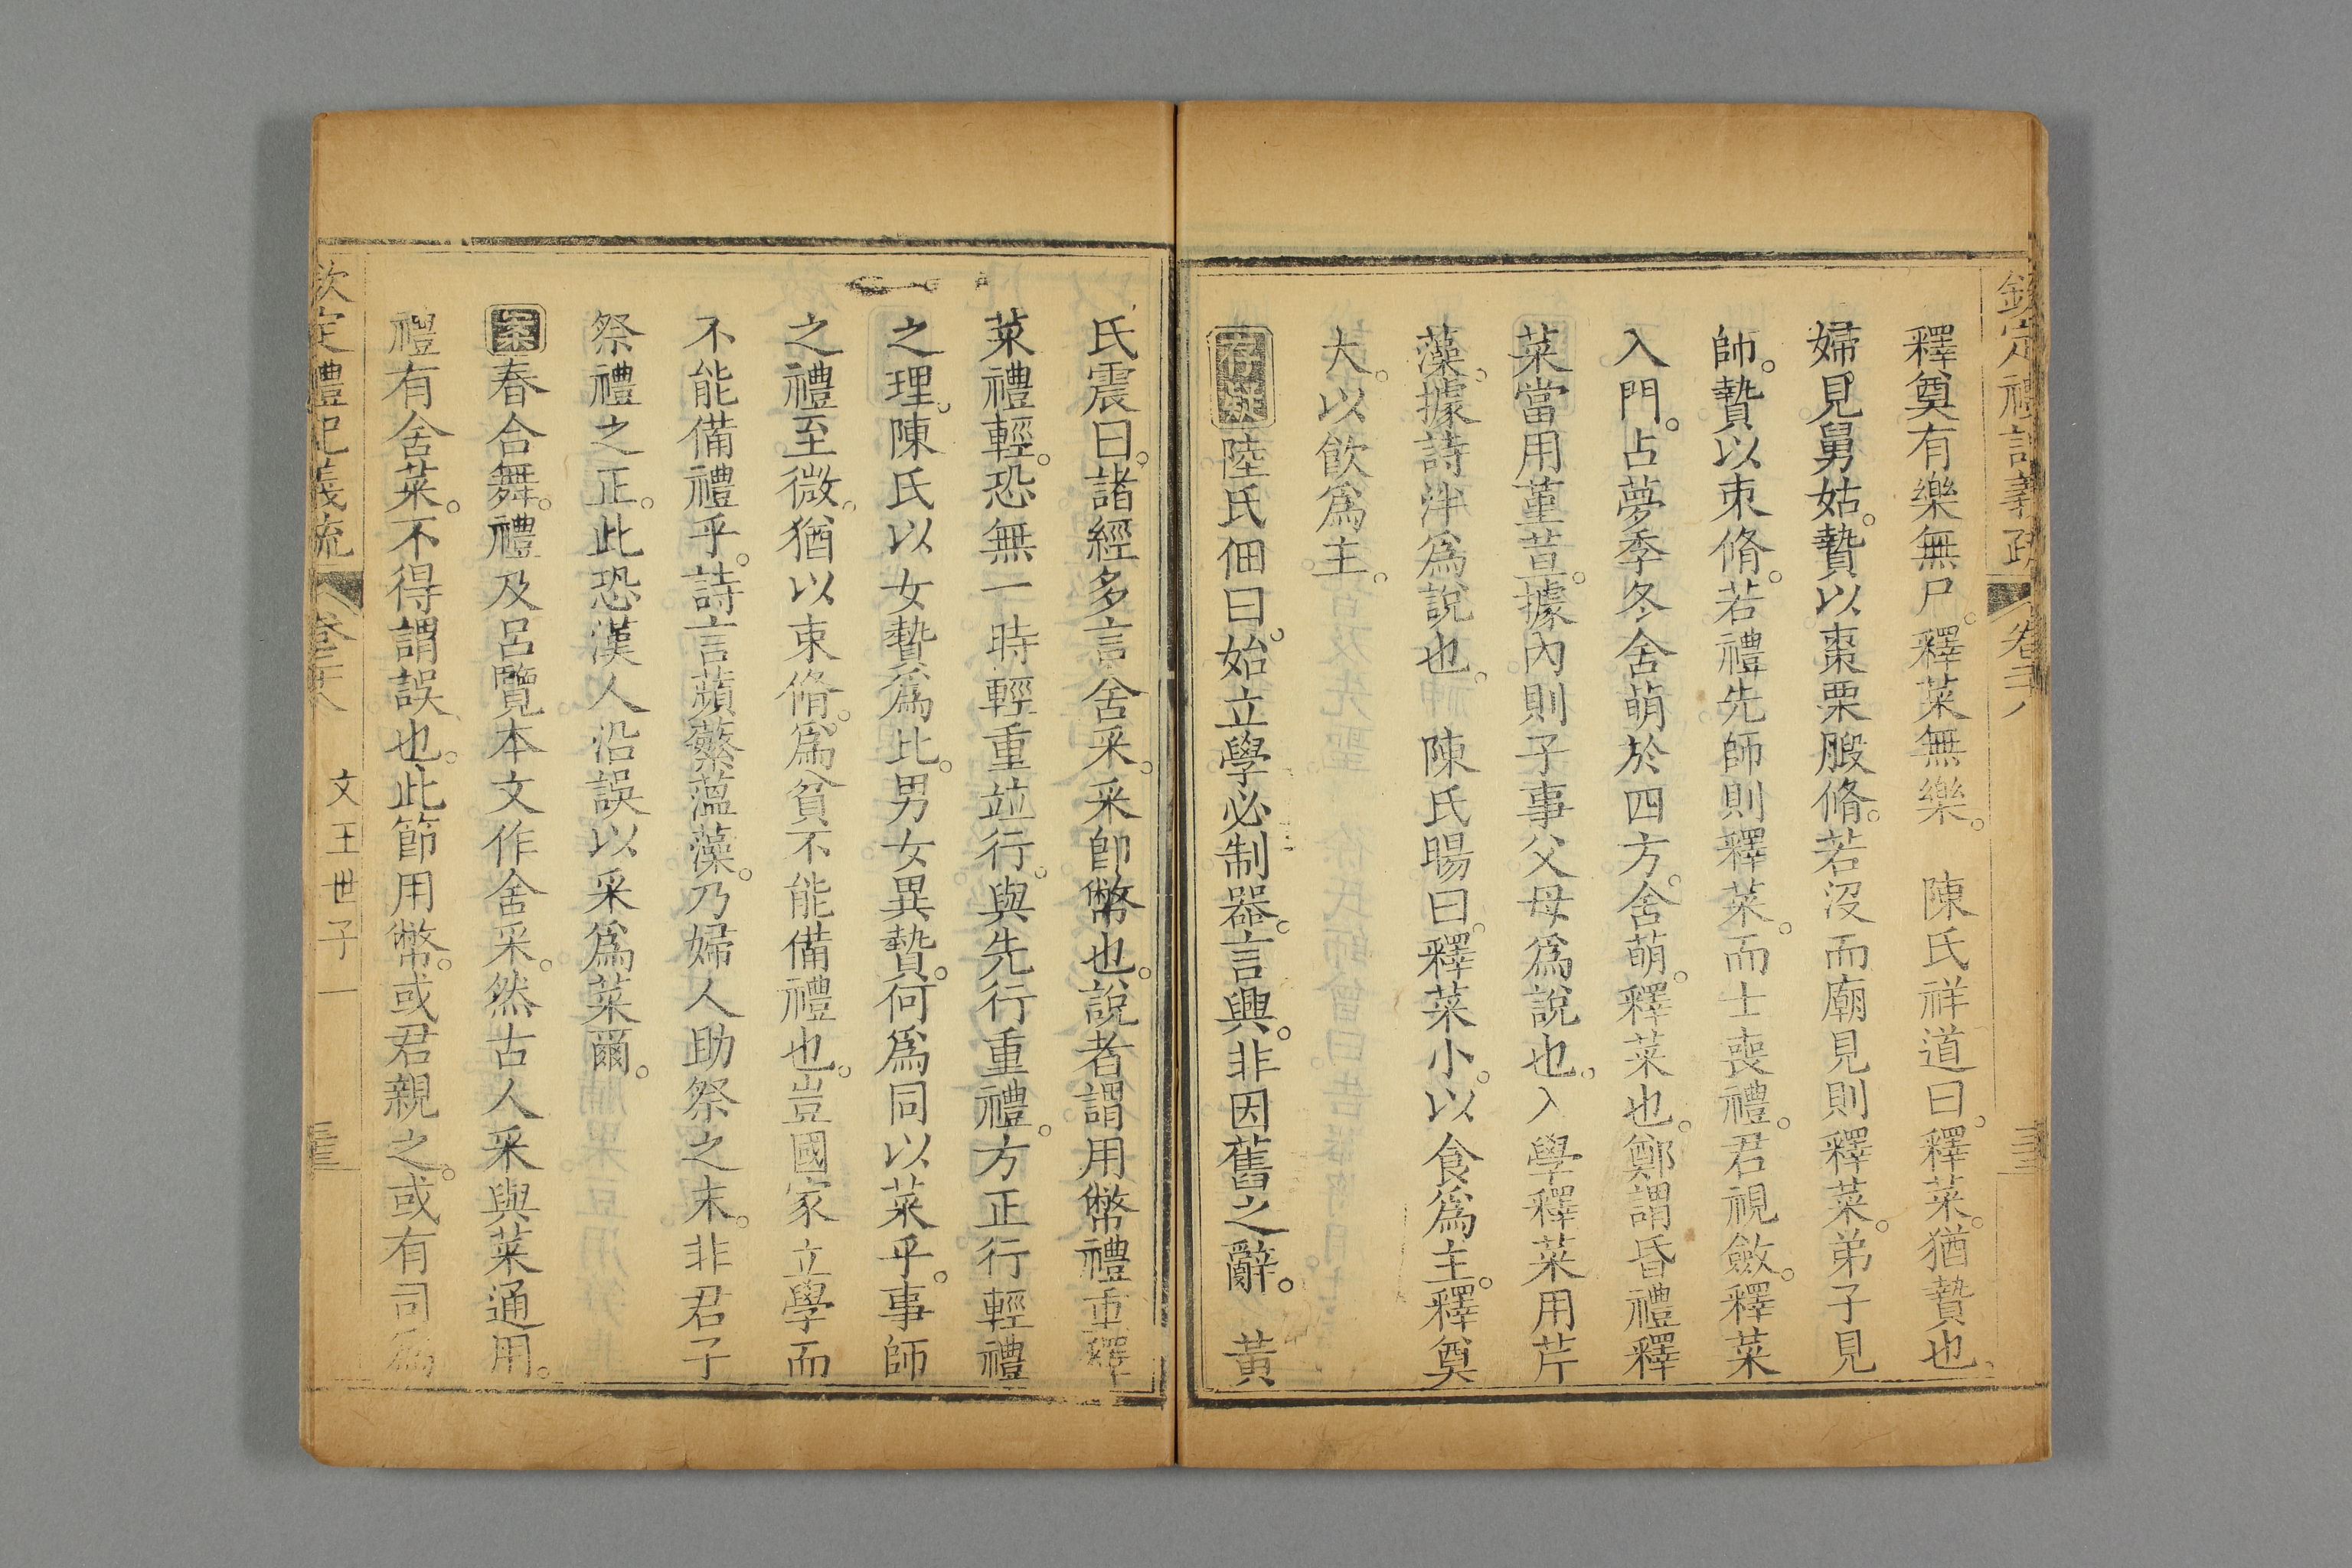 欽定禮記義疏 卷二十八
釋奠有樂無尸。釋菜無樂。 陳氏祥道曰。釋菜。猶贄也。
婦見舅姑。贄以棗栗腶脩。若沒而廟見則釋菜。弟子見
師。贄以束脩。若禮先師則釋菜。而士喪禮。君視斂。釋菜
入門。占夢季冬舍萌於四方。舍萌。釋菜也。鄭謂昏禮釋
菜當用菫荁。據內則子事父母爲說也。入學釋菜用芹
藻。據詩泮爲說也。 陳氏暘曰。釋菜小。以食爲主。釋奠
大。以飲爲主。
存疑陸氏佃曰。始立學必制器。言興。非因舊之辭。 黃
氏震曰。諸經多言舍采。采卽幣也。說者謂用幣禮重釋
菜禮輕。恐無一時輕重並行。與先行重禮。方正行輕禮
之理。陳氏以女贄爲比。男女異贄。何爲同以菜乎。事師
之禮至微。猶以束脩。爲貧不能備禮也。豈國家立學而
不能備禮乎。詩言蘋蘩薀藻。乃婦人助祭之末。非君子
祭禮之正。此恐漢人沿誤以采爲菜爾。
案春合舞。禮及呂覽本文作舍采。然古人采與菜通用。
禮有舍菜。不得謂誤也。此節用幣。或君親之。或有司爲
欽定禮記義疏 卷二十八 文王世子一